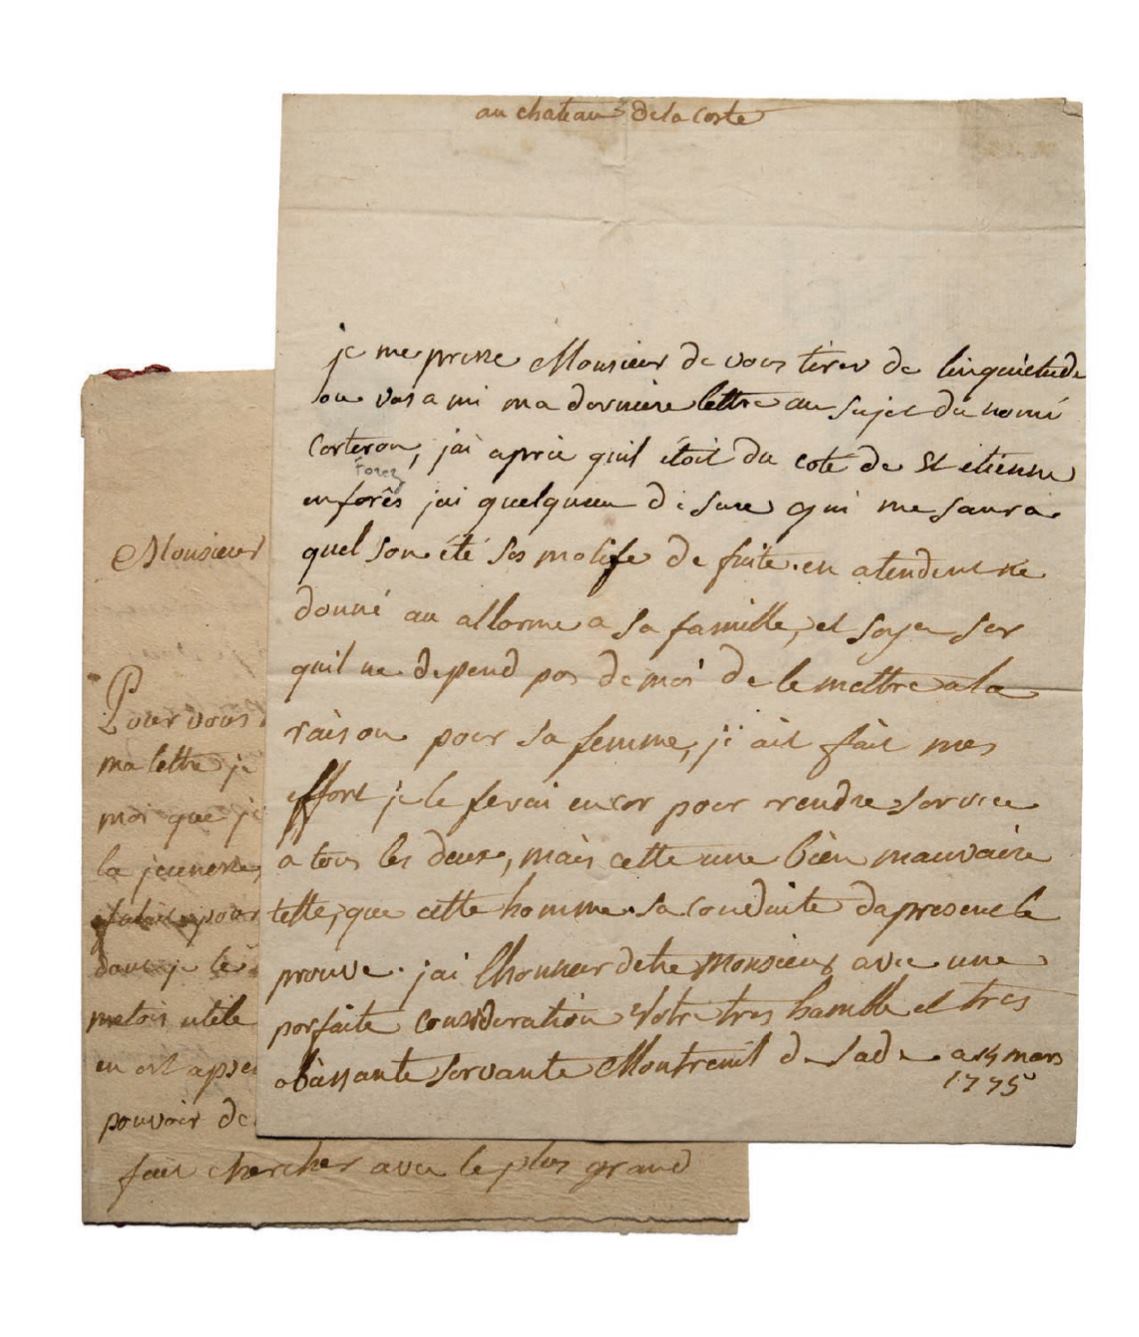 au chateau de la coste
je me presse Monsieur de vous tirer de linquietude
ou vos a mi ma derniere lettre au sujet du nomé
Corteron, jai apris quil étoit du coté de St étienne
Forez
en forês jai quelquun di sure qui me saura
quel son été ses motife de fuite en atendent ne
donné au allarme a sa famille, et soyes sur
quil ne depend pas de moi de le mettre a la
raison pour sa femme, j'ait fait mes
effort je le ferai encor pour rendre service
a tous les deux, mais cette une bien mauvaise
tette, que cette homme sa conduite dapresent le
prouve. jai lhonneur detre Monsieur avec une
parfaite consideration Votre tres humble et tres
obaissante servante Montreuil de Sade a 14 mars
1775
Monsieur
Pour vous
ma lettre je
moi que j
la jeunesse,
pour
dont je le
metois utile
en est
pouvoir de
fait chercher avec le plus grand